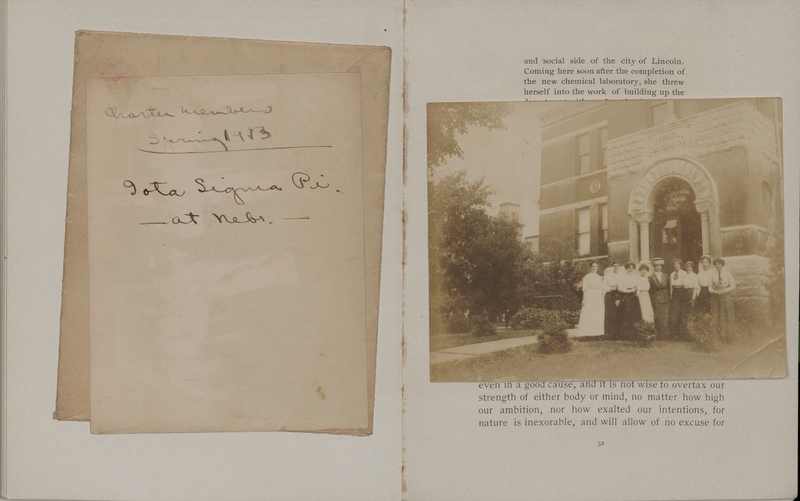 Charter Members
Spring 1913
Iota Sigma Pi.
— at Nebr. —
and social side of the city of Lincoln.
Coming here soon after the completion of
the new chemical laboratory, she threw
herself into the work of building up the
even in a good cause, and it is not wise to overtax our
strength of either body or mind, no matter how high
our ambition, nor how exalted our intentions, for
nature is inexorable, and will allow of no excuse for
52